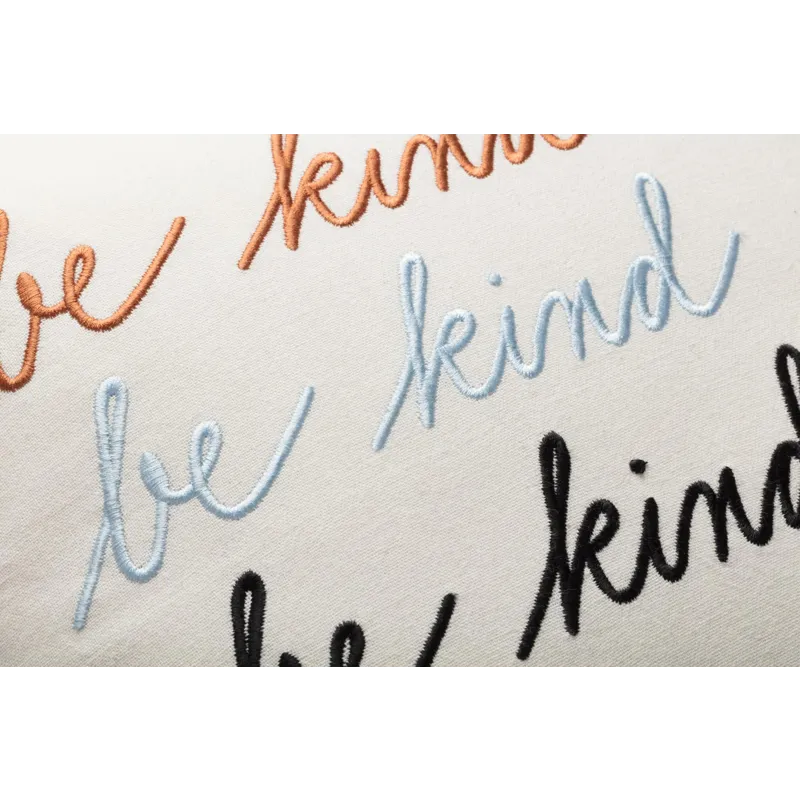 be kind
be kind
be kind